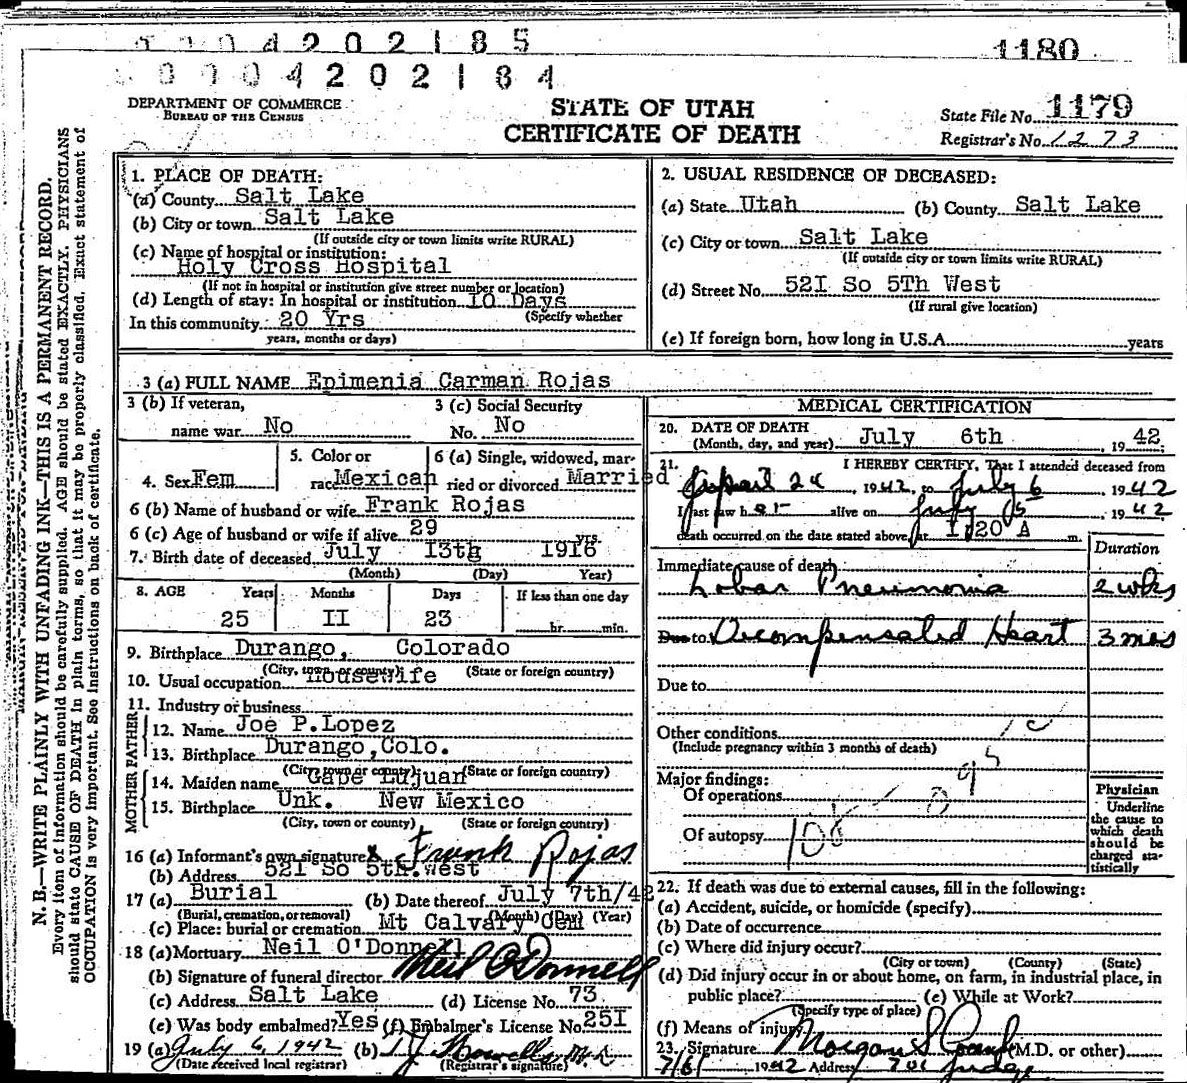 04202185
1180
004202184
DEPARTMENT OF COMMERCE
BUREAU OF THE CENSUS
STATE OF UTAH
CERTIFICATE OF DEATH
State File No. 1179
Registrar's No. 1273
N. B.—WRITE PLAINLY WITH UNFADING INK—THIS IS A PERMANENT RECORD.
Every item of information should be carefully supplied. AGE should be stated EXACTLY. PHYSICIANS
should state CAUSE OF DEATH in plain terms, so that it may be properly classified. Exact statement of
OCCUPATION is very important. See instructions on back of certificate.
1. PLACE OF DEATH:
(a) County Salt Lake
(b) City or town Salt Lake
(If outside city or town limits write RURAL)
(c) Name of hospital or institution:
Holy Cross Hospital
(If not in hospital or institution give street number or location)
(d) Length of stay: In hospital or institution 10 Days
(Specify whether
In this community 20 Yrs
years, months or days)
2. USUAL RESIDENCE OF DECEASED:
(a) State Utah (b) County Salt Lake
(c) City or town Salt Lake
(If outside city or town limits write RURAL)
(d) Street No. 521 So 5Th West
(If rural give location)
(e) If foreign born, how long in U.S.A. years
3 (a) FULL NAME Epimenia Carman Rojas
3 (b) If veteran, name war No
3 (c) Social Security No. No
4. Sex Fem
5. Color or race Mexican
6 (a) Single, widowed, married or divorced Married
6 (b) Name of husband or wife Frank Rojas
6 (c) Age of husband or wife if alive 29 yrs.
7. Birth date of deceased July 13th 1916
(Month) (Day) Year)
8. AGE Years Months Days If less than one day
25 11 23 hr. min.
9. Birthplace Durango, Colorado
(City, town or county) (State or foreign country)
10. Usual occupation Housewife
11. Industry or business
FATHER
12. Name Joe P.Lopez
13. Birthplace Durango,Colo.
(City, town or county) (State or foreign country)
MOTHER
14. Maiden name Gabe Lujuan
15. Birthplace Unk. New Mexico
(City, town or county) (State or foreign country)
16 (a) Informant's own signature x Frank Rojas
(b) Address 521 So 5th.west
17 (a) Burial (b) Date thereof July 7th/42
(Burial, cremation, or removal) (Month) (Day) (Year)
(c) Place: burial or cremation Mt Calvary Cem
18 (a) Mortuary Neil O'Donnell
(b) Signature of funeral director Neil O'Donnell
(c) Address Salt Lake (d) License No. 73
(e) Was body embalmed? Yes (f) Embalmer's License No. 251
19 (a) July 6, 1942 (b) T J Howells M.D.
(Date received local registrar) (Registrar's signature)
MEDICAL CERTIFICATION
20. DATE OF DEATH
(Month, day, and year) July 6th, 1942
21. I HEREBY CERTIFY, That I attended deceased from
April 24, 1942, to July 6 1942
I last saw her alive on July 5, 1942
death occurred on the date stated above, at 1:20 A m.
Duration
Immediate cause of death
Lobar Pneumonia 2 wks
Due to Decompensated Heart 3 mos
Due to
Other conditions
(Include pregnancy within 3 months of death)
Major findings:
Of operations
Of autopsy
108
Physician
Underline
the cause to
which death
should be
charged sta-
tistically
22. If death was due to external causes, fill in the following:
(a) Accident, suicide, or homicide (specify)
(b) Date of occurrence
(c) Where did injury occur?
(City or town) (County) (State)
(d) Did injury occur in or about home, on farm, in industrial place, in
public place? (e) While at Work?
(Specify type of place)
(f) Means of injury
23. Signature Morgan S (M.D. or other)
7/6/ 1942 Address 701 Judge